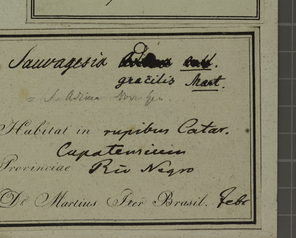 Sauvagesia
gracilis Mart.
Habitat in rupibus Catar.
Cupatensium
Provinciae Rio Negro
De Martius Iter Brasil. Febr